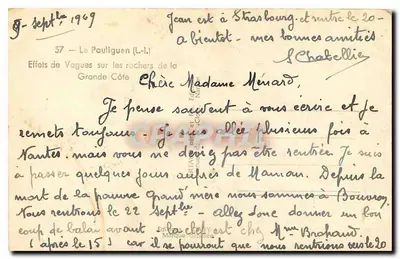 9 - septbre 1949
Jean est à Strasbourg - et rentre le 20 -
A bientôt - mes bonnes amitiés
S Chabellier
57 - Le Pouliguen (L.-I.)
Effets de Vagues sur les rochers de la
Grande Côte
Chère Madame Ménard,
Je pense souvent à vous écrire et je
remets toujours - Je suis allée plusieurs fois à
Nantes, mais vous ne deviez pas être rentrée. Je suis
à passer quelques jours auprès de Maman. Depuis la
mort de la pauvre Grand'mère nous sommes à Bouvron
Nous rentrons le 22 septbre - allez donc donner un bon
coup de balai avant - la clef est chez Mme
(après le 15) car il se pourrait que nous rentrions vers le 20